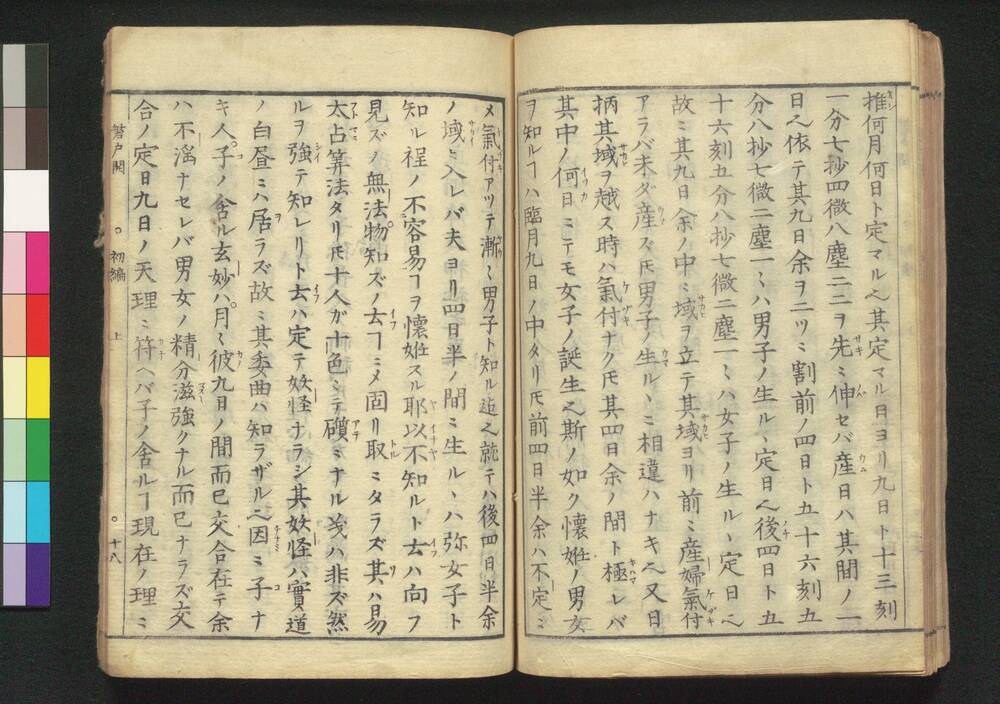 推何月何日ト定マル也其定マル日ヨリ九日ト十三刻
一分七抄四微八塵二二ヲ先ミ伸セバ産日ハ其間ノ一
日也依テ其九日余ヲ二ツミ割前ノ四日ト五十六刻五
分八抄七微二塵一ミハ男子ノ生ルヽ定日也後四日ト五
十六刻五分八抄七微二塵一ミハ女子ノ生ルヽ定日也
故ミ其九日余ノ中ミ域ヲ立テ其域ヨリ前ミ産婦氣付
アラバ未ダ産ズ𪜈男子ノ生ルヽミ相違ハナキ也又日
柄其域ヲ越ス時ハ氣付ナク𪜈其四日余ノ間ト極レバ
其中ノ何日ミテモ女子ノ誕生也斯ノ如ク懐妊ノ男女
ヲ知ルヿハ臨月九日ノ中タリ𪜈前四日半余ハ不定ミ
メ氣付アツテ漸ミ男子ト知ル迠也就テハ後四日半余
ノ域ミ入レバ夫ヨリ四日半ノ間ミ生ルヽハ弥女子ト
知ル程ノ不容易ヿヲ懐妊スル耶以不知ルト云ハ向フ
見ズノ無法物知ズノ云ヿミメ固リ取ミタラズ其ハ易
太占算法タリ𪜈十人ガ十色ミテ礩ミナル羙ハ非ズ然
ルヲ強テ知レリト云ハ定テ妖怪ナラシ其妖怪ハ實道
ノ白昼ミハ居ラズ故ミ其委曲ハ知ラザル也因ミ子ナ
キ人子ノ舎ル玄妙ハ月ミ彼九日ノ間而已交合在テ余
ハ不滛ナセレバ男女ノ精分滋強クナル而已ナラズ交
合ノ定日九日ノ天理ミ符ヘバ子ノ舎ルヿ現在ノ理ミ
初編
上
十八